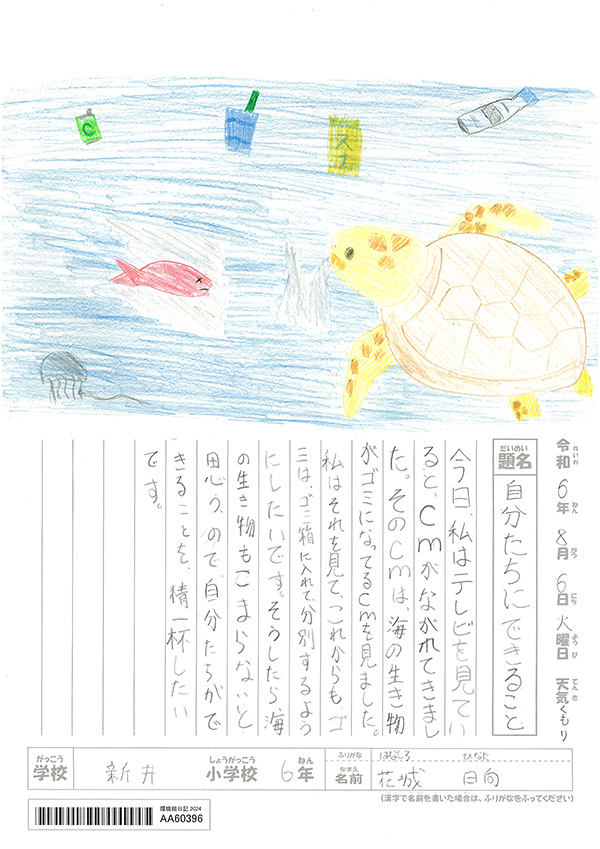 C
スナ
令和6年8月6日火曜日 天気くもり
れいわ ねん がつ にち ようび てんき
だいめい
題名
自分たちにできること
今日、私はテレビを見てい
ると、Cmがながれてきまし
た。そのCmは、海の生き物
がゴミになってるCmを見ました。
私はそれを見て、これからも、ゴ
ミは、ゴミ箱に入れて、分別するよう
にしたいです。そうしたら海
の生き物もこまらないと
思うので、自分たちがで
きることを、精一杯したい
です。
がっこう しょうがっこう ねん
学校 新井 小学校 6年
ふりがな はなしろ ひなた
なまえ
名前 花城 日向
(漢字で名前を書いた場合は、ふりがなをふってください)
環境絵日記 2024
AA60396